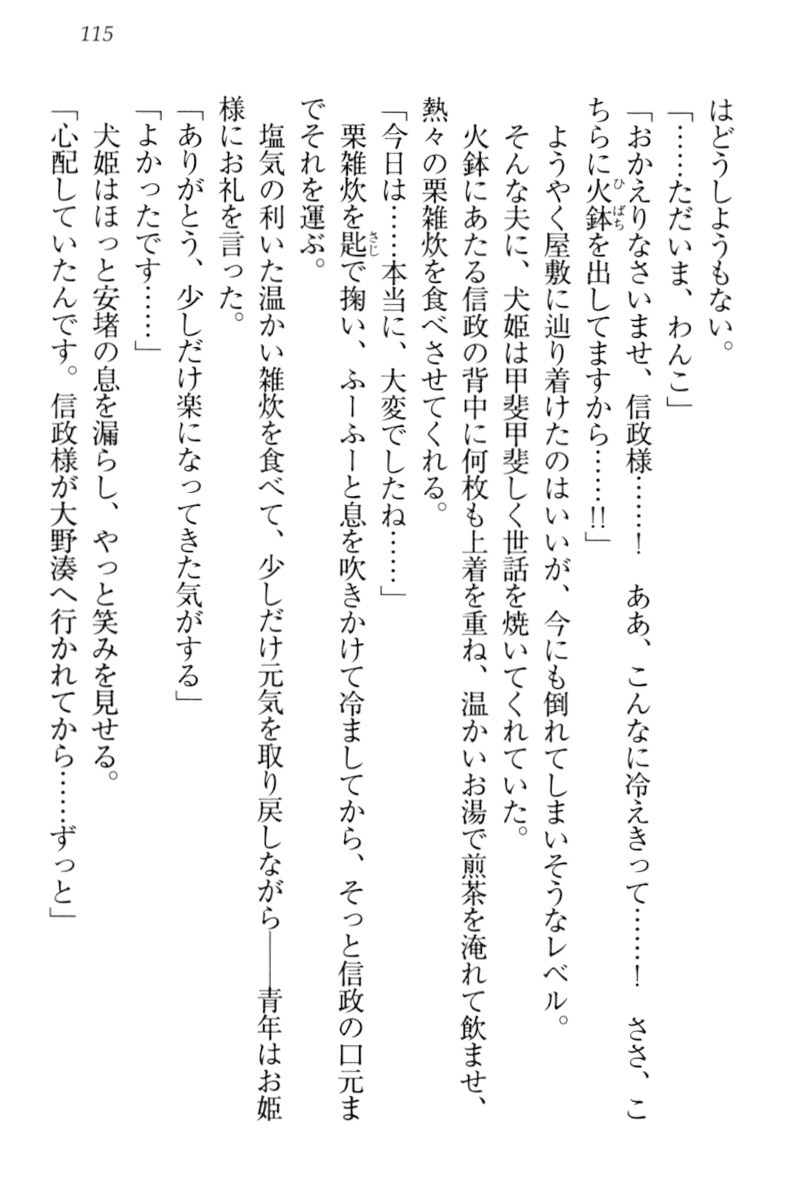 115
はどうしようもない。
「……ただいま、わんこ」
「おかえりなさいませ、信政様……！　ああ、こんなに冷えきって……！　ささ、こ
ちらに火鉢を出してますから……!!」
ようやく屋敷に辿り着けたのはいいが、今にも倒れてしまいそうなレベル。
そんな夫に、犬姫は甲斐甲斐しく世話を焼いてくれていた。
火鉢にあたる信政の背中に何枚も上着を重ね、温かいお湯で煎茶を淹れて飲ませ、
熱々の栗雑炊を食べさせてくれる。
「今日は……本当に、大変でしたね……」
栗雑炊を匙で掬い、ふーふーと息を吹きかけて冷ましてから、そっと信政の口元ま
でそれを運ぶ。
塩気の利いた温かい雑炊を食べて、少しだけ元気を取り戻しながら――青年はお姫
様にお礼を言った。
「ありがとう、少しだけ楽になってきた気がする」
「よかったです……」
犬姫はほっと安堵の息を漏らし、やっと笑みを見せる。
「心配していたんです。信政様が大野湊へ行かれてから……ずっと」